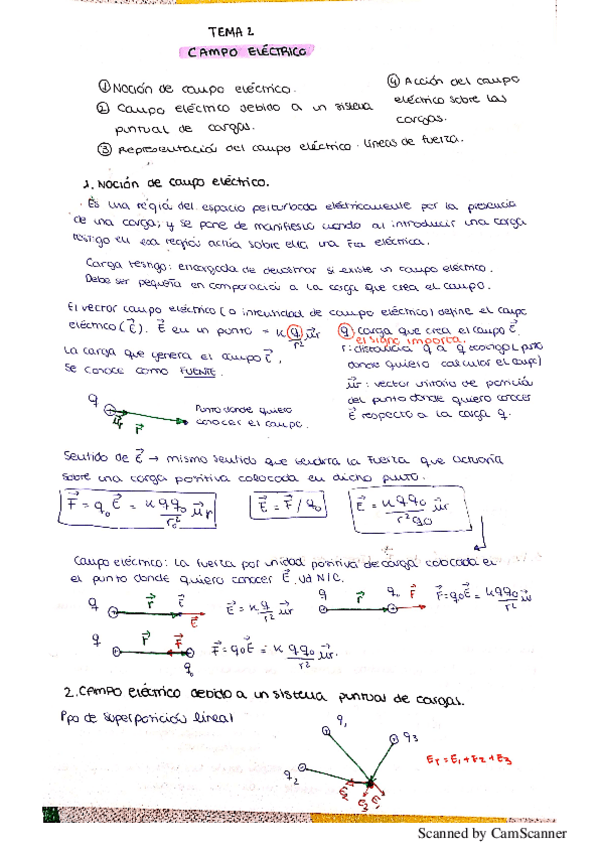 TEMA 2
CAMPO ELÉCTRICO
① Noción de campo eléctrico.
② Campo eléctrico debido a un sistema
puntual de cargas.
③ Representación del campo eléctrico. Líneas de fuerza.
④ Acción del campo
eléctrico sobre las
cargas.
1. Noción de campo eléctrico.
· Es una región del espacio perturbada eléctricamente por la presencia
de una carga; y se pone de manifiesto cuando al introducir una carga
testigo en esa región actúa sobre ella una Fza eléctrica.
Carga testigo: encargada de determinar si existe un campo eléctrico.
Debe ser pequeña en comparación a la carga que crea el campo.
El vector campo eléctrico (o intensidad de campo eléctrico) define el campo
eléctrico (E⃗). E⃗ en un punto = K q/r² u⃗r
La carga que genera el campo E⃗,
se conoce como FUENTE.
q: carga que crea el campo E⃗.
el signo importa.
r: distancia q a q testigo (punto
donde quiero calcular el campo)
u⃗r: vector unitario de posición
del punto donde quiero conocer
E⃗ respecto a la carga q.
q
u⃗r r⃗
Punto donde quiero
conocer el campo.
Sentido de E⃗ → mismo sentido que tendría la fuerza que actuaría
sobre una carga positiva colocada en dicho punto.
F⃗ = q₀E⃗ = K qq₀/r₀² u⃗r
E⃗ = F⃗/q₀
E⃗ = K qq₀/r²q₀ u⃗r
Campo eléctrico: la fuerza por unidad positiva de carga colocada en
el punto donde quiero conocer E⃗. Ud N/C.
q r⃗ E⃗ E⃗ = K q/r² u⃗r
q r⃗ q₀ F⃗ F⃗ = q₀E⃗ = K qq₀/r² u⃗r
q r⃗ F⃗ q₀ F⃗ = q₀E⃗ = K qq₀/r² u⃗r.
2. CAMPO eléctrico debido a un sistema puntual de cargas.
Ppo de superposición lineal
q₁
q₃
q₂
E⃗₂ E⃗₃ E⃗₁
E_T = E₁ + E₂ + E₃
Scanned by CamScanner